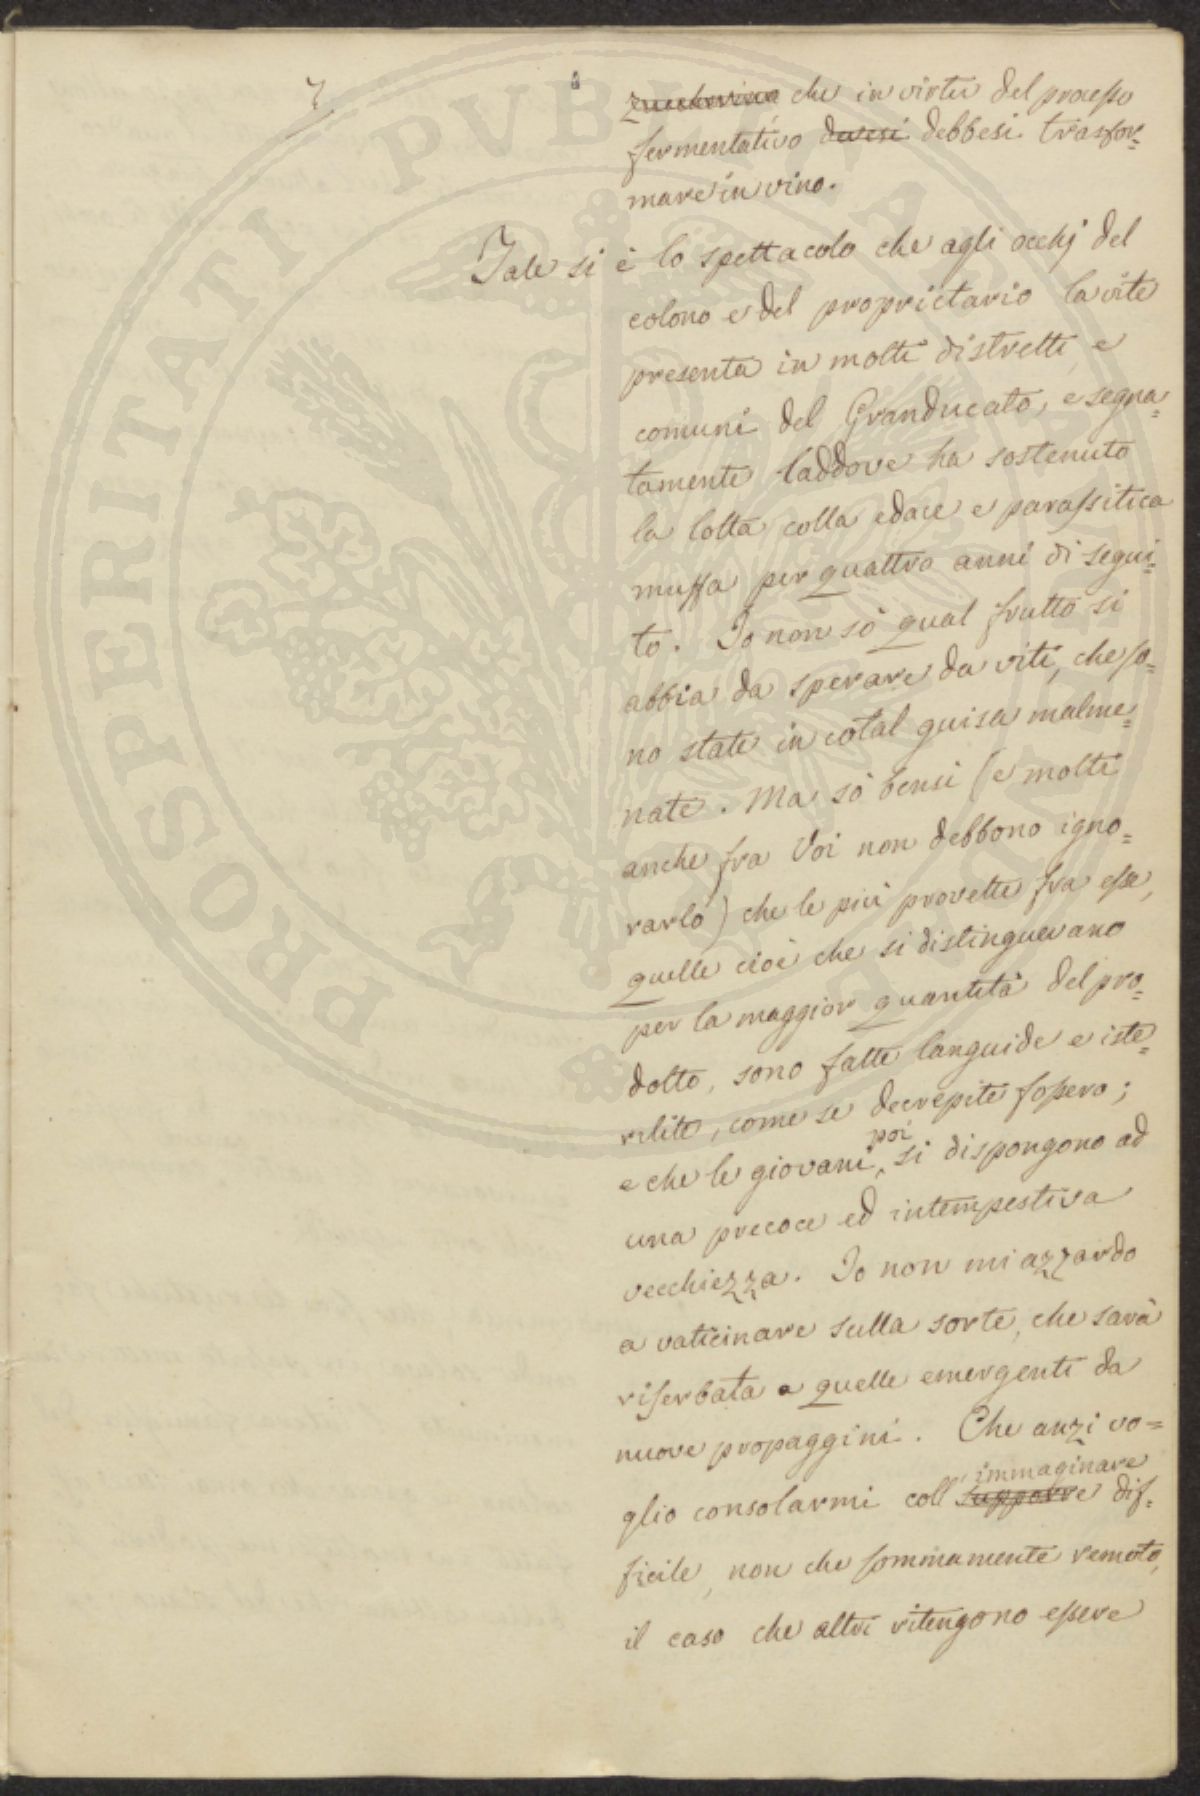 7
~~zuccherino~~ che in virtù del processo
fermentativo ~~devesi~~ debbesi trasfor=
mare in vino.
Tale si è lo spettacolo che agli occhj del
colono e del proprietario la vite
presenta in molti distretti e
comuni del Granducato, e segna=
tamente laddove ha sostenuto
la lotta colla edace e parassitica
muffa per quattro anni di segui=
to. Io non sò qual frutto si
abbia da sperare da viti, che so=
no state in cotal guisa malme=
nate. Ma sò bensi (e molti
anche fra Voi non debbono igno=
rarlo) che le più provette fra esse,
quelle cioè che si distinguevano
per la maggior quantità del pro=
dotto, sono fatte languide e iste=
rilite, come se decrepite fossero;
e che le giovani poi si dispongono ad
una precoce ed intempestiva
vecchiezza. Io non mi azzardo
a vaticinare sulla sorte, che sarà
riserbata a quelle emergenti da
nuove propaggini. Che anzi vo=
glio consolarmi coll' ~~supporre~~ immaginare dif=
ficile, non che sommamente remoto,
il caso che altri ritengono essere
PROSPERITATI PVBLICAE